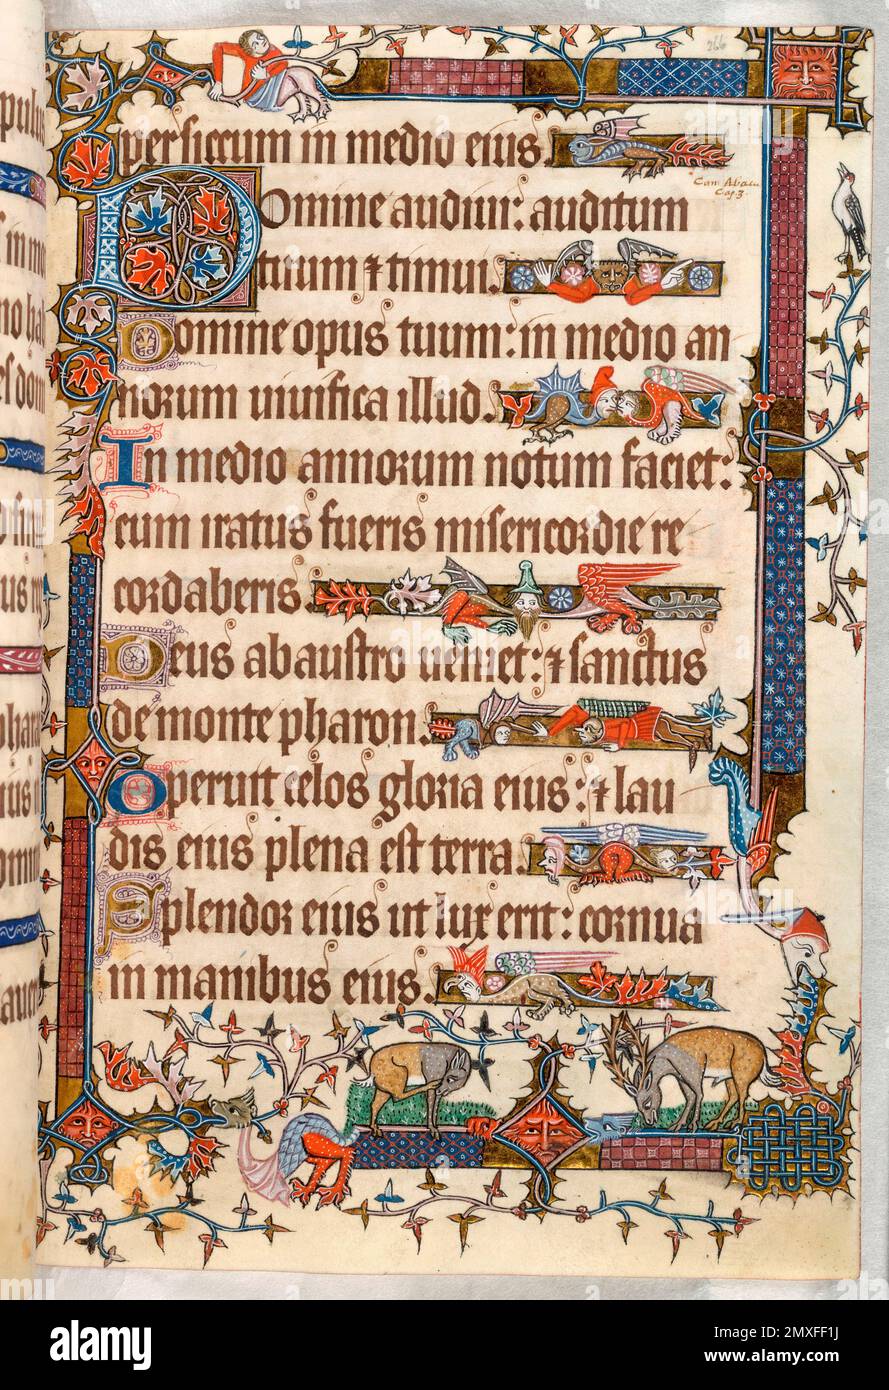 266
per siccum in medio eius.
Domine audiui: auditum
tuum ⁊ timui.
Domine opus tuum: in medio an
norum uiuifica illud.
In medio annorum notum facies:
cum iratus fueris misericordie re
cordaberis.
Deus ab austro ueniet: ⁊ sanctus
de monte pharan.
Operuit celos gloria eius: ⁊ lau
dis eius plena est terra.
Splendor eius ut lux erit: cornua
in manibus eius.
Cap. 3
a
alamy
Image ID: 2MXFF1J
www.alamy.com